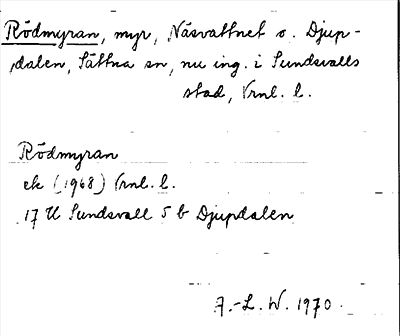 Rödmyran, myr, Näsvattnet o. Djup-
dalen, Sättna sn, nu ing. i Sundsvalls
stad, Vrnl. l.
Rödmyran
ek (1968) Vrnl. l.
17 H Sundsvall 5 b Djupdalen
J.-L. W. 1970.